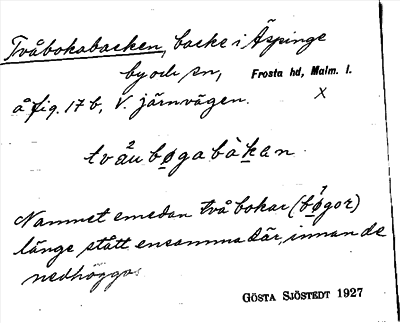 Tvåbokabacken, backe i Äspinge
by och sn, Frosta hd, Malm. l.
å fig. 17 b, V. järnvägen. X
tvåubøgabàkan
Namnet emedan två bokar (bøgor)
länge stått ensamma där, innan de
nedhöggos
GÖSTA SJÖSTEDT 1927